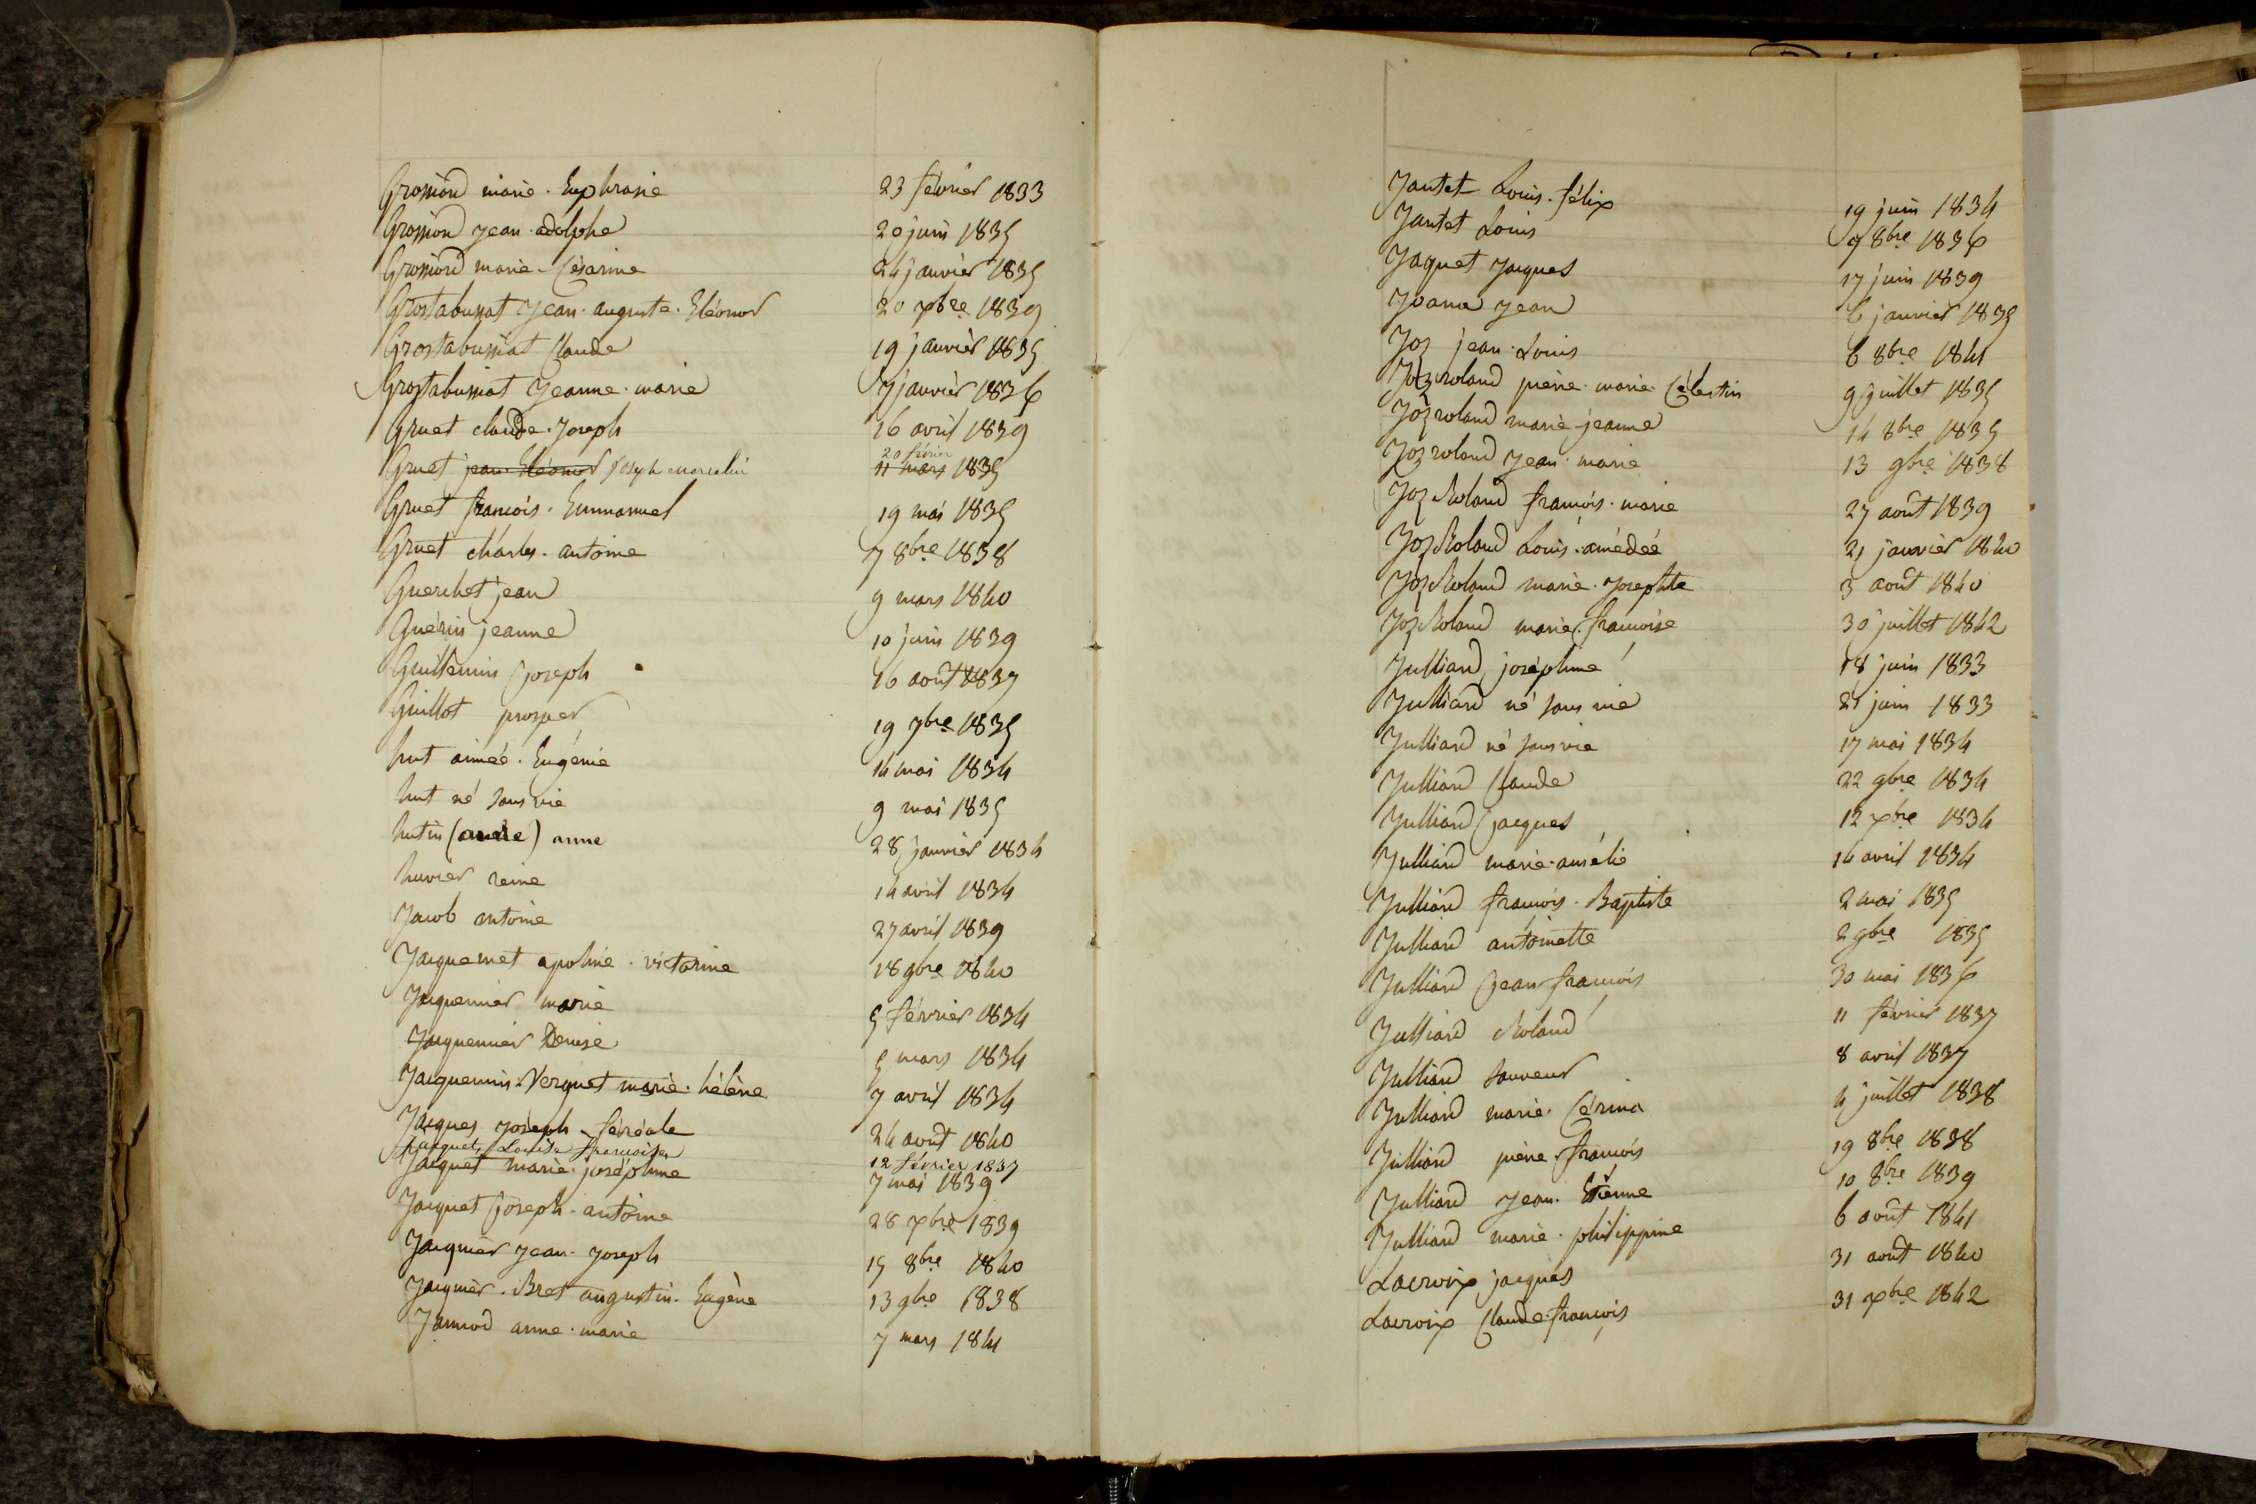 Grossiord marie. Euphrasie 23 février 1833
Grossiord jean. adolphe 20 juin 1835
Grossiord marie. Césarine 24 janvier 1835
Grostabussiat Jean. auguste. Eléonor 20 xbre 1839
Grostabussiat Claude 19 janvier 1835
Grostabussiat Jeanne. marie 7 janvier 1836
Gruet claude. Joseph 16 avril 1839
20 février
Gruet jean Eléonor Joseph marcelin 11 mars 1835
Gruet françois. Emmanuel 19 mai 1835
Gruet charles. antoine 7 8bre 1838
Guerchet jean 9 mars 1840
Guérin jeanne 10 juin 1839
Guillemin joseph 16 août 1837
Guillot prosper 19 7bre 1835
hut aimée. Eugénie 14 mai 1834
hut né sans vie 9 mai 1835
hutin ( ) anne 28 janvier 1834
huvier reine 14 avril 1834
Jacob antoine 27 avril 1839
Jacquemet apoline. victorine 18 9bre 1840
Jacquemier marie 5 février 1834
Jacquemier Denise 5 mars 1834
Jacquemin-Verguet marie. hélène 7 avril 1834
Jacques joseph. féréole 24 août 1840
Jacquet Louise françoise 12 février 1837
Jacquet marie. joséphine 7 mai 1839
Jacquet joseph. antoine 28 xbre 1839
Jacquier jean. joseph 15 8bre 1840
Jacquier. Bret augustin. Eugène 13 9bre 1838
Janiod anne. marie 7 mars 1841
Jantet Louis. félix 19 juin 1834
Jantet Louis 9 8bre 1836
Jaquet Jacques 17 juin 1839
Jean 6 janvier 1835
Joz jean. Louis 6 8bre 1841
Joz roland pierre. marie. Célestin 9 juillet 1835
Joz roland marie. jeanne 14 8bre 1835
Joz roland jean. marie 13 9bre 1838
Joz Roland françois. marie 27 août 1839
Joz Roland Louis. amédée 21 janvier 1840
Joz Roland marie. Josephte 3 août 1840
Joz Roland marie. françoise 30 juillet 1842
Julliard joséphine 18 juin 1833
Julliard né sans vie 21 juin 1833
Julliard né sans vie 17 mai 1834
Julliard Claude 22 9bre 1834
Julliard jacques 12 xbre 1834
Julliard marie. amélie 14 avril 1834
Julliard françois. Baptiste 2 mai 1835
Julliard antoinette 2 9bre 1835
Julliard jean françois 30 mai 1836
Julliard Roland 11 février 1837
Julliard Sauveur 8 avril 1837
Julliard marie. Cérina 4 juillet 1838
Julliard pierre. françois 19 8bre 1838
Julliard jean. Etienne 10 8bre 1839
Julliard marie. philippine 6 août 1841
Lacroix jacques 31 août 1840
Lacroix Claude. françois 31 xbre 1842